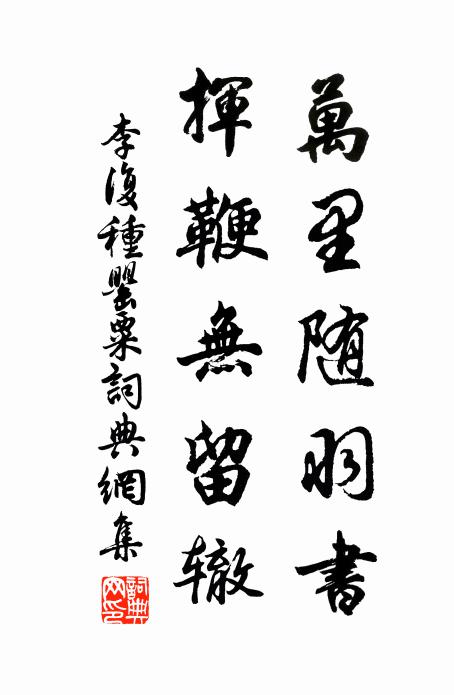 萬里随羽書
揮鞭無留辙
李復種罌粟詞典網集
詞典网印